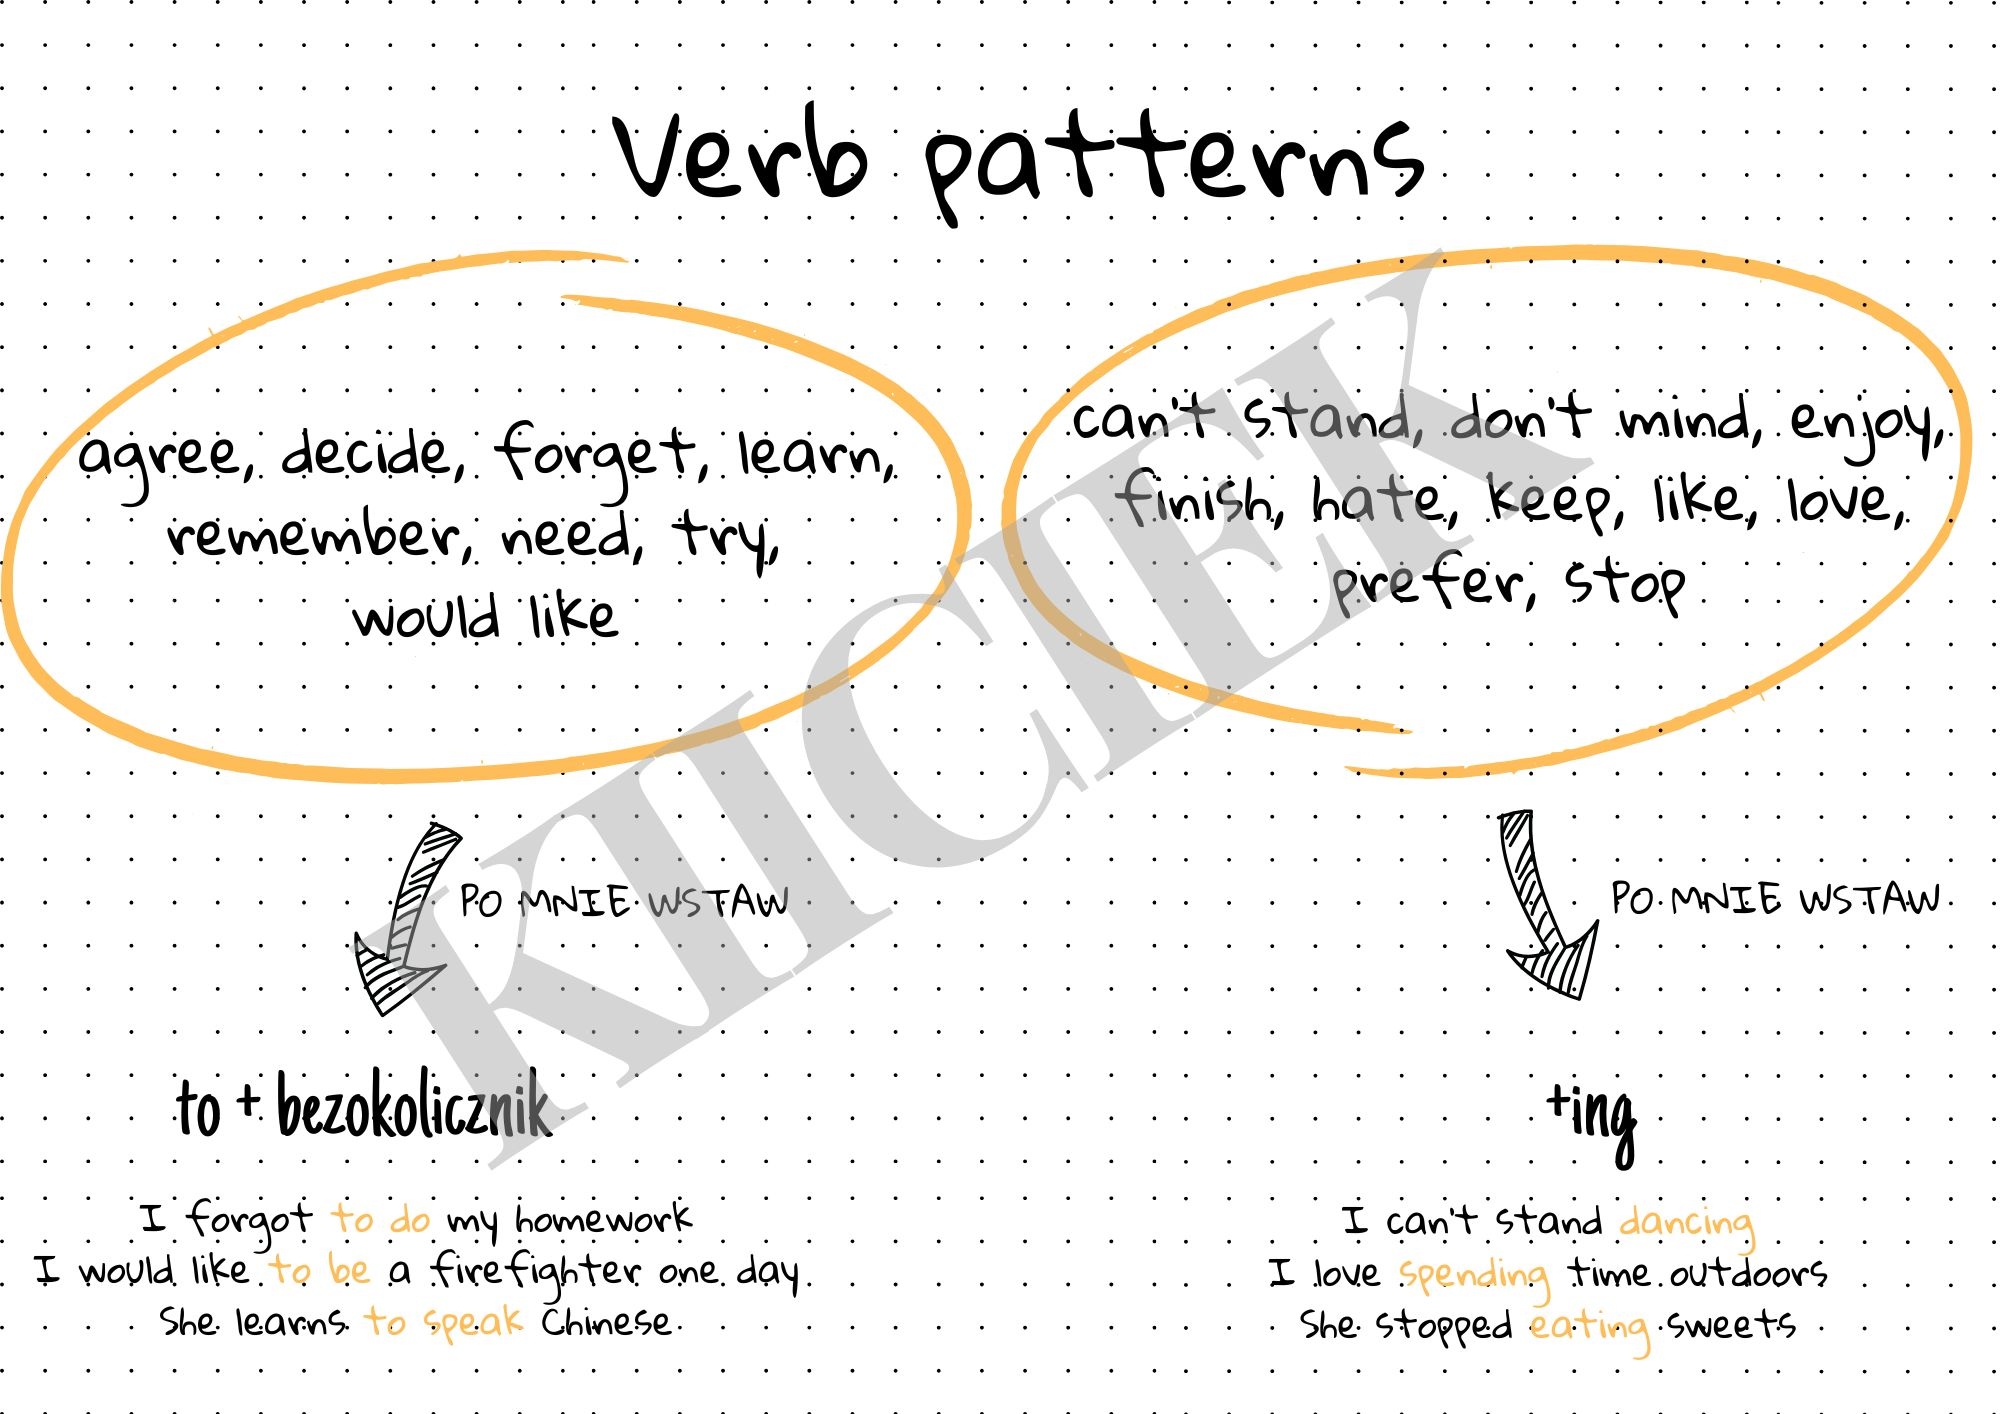 Verb patterns
agree, decide, forget, learn,
remember, need, try,
would like
can't stand, don't mind, enjoy,
finish, hate, keep, like, love,
prefer, stop
PO MNIE WSTAW
PO MNIE WSTAW
to + bezokolicznik
I forgot to do my homework
I would like to be a firefighter one day
She learns to speak Chinese
+ing
I can't stand dancing
I love spending time outdoors
She stopped eating sweets
KIICIEK